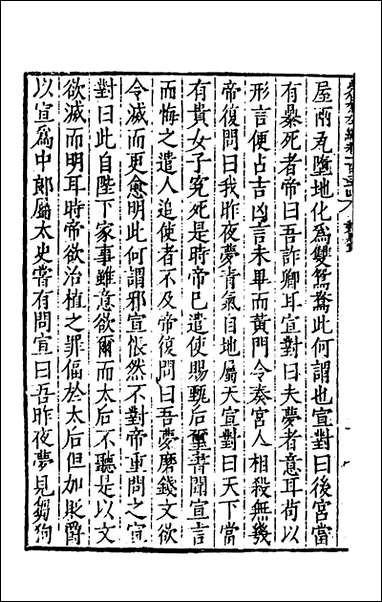 屋兩瓦墮地化為雙鴛鴦此何謂也宣對曰後宮當
有暴死者帝曰吾詐卿耳宣對曰夫夢者意耳苟以
形言便占吉凶言未畢而黃門令奏宮人相殺無幾
帝復問曰我昨夜夢青氣自地屬天宣對曰天下當
有貴女子冤死是時帝已遣使賜甄后璽書聞宣言
而悔之遣人追使者不及帝復問曰吾夢磨錢文欲
令滅而更愈明此何謂邪宣悵然不對帝重問之宣
對曰此自陛下家事雖意欲爾而太后不聽是以文
欲滅而明耳時帝欲治植之罪偪於太后但加貶爵
以宣為中郎屬太史嘗有問宣曰吾昨夜夢見芻狗